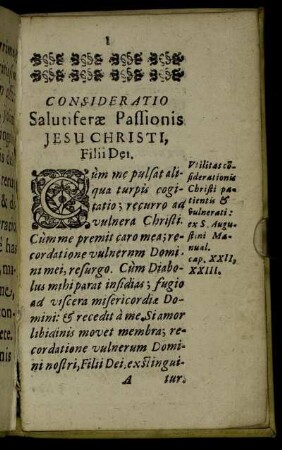 1
CONSIDERATIO
Salutiferæ Passionis
JESU CHRISTI,
Filii Dei.
Cùm me pulsat ali-
qua turpis cogi-
tatio; recurro ad
vulnera Christi.
Cùm me premit caro mea; re-
cordatione vulnerum Domi-
ni mei, resurgo. Cùm Diabo-
lus mihi parat insidias; fugio
ad viscera misericordiæ Do-
mini: & recedit à me. Si amor
libidinis movet membra; re-
cordatione vulnerum Domi-
ni nostri, Filii Dei, extingui-
A tur.
Vtilitas cõ-
siderationis
Christi pa-
tientis &
vulnerati:
ex S. Augu-
stini Ma-
nual.
cap. XXII,
XXIII.